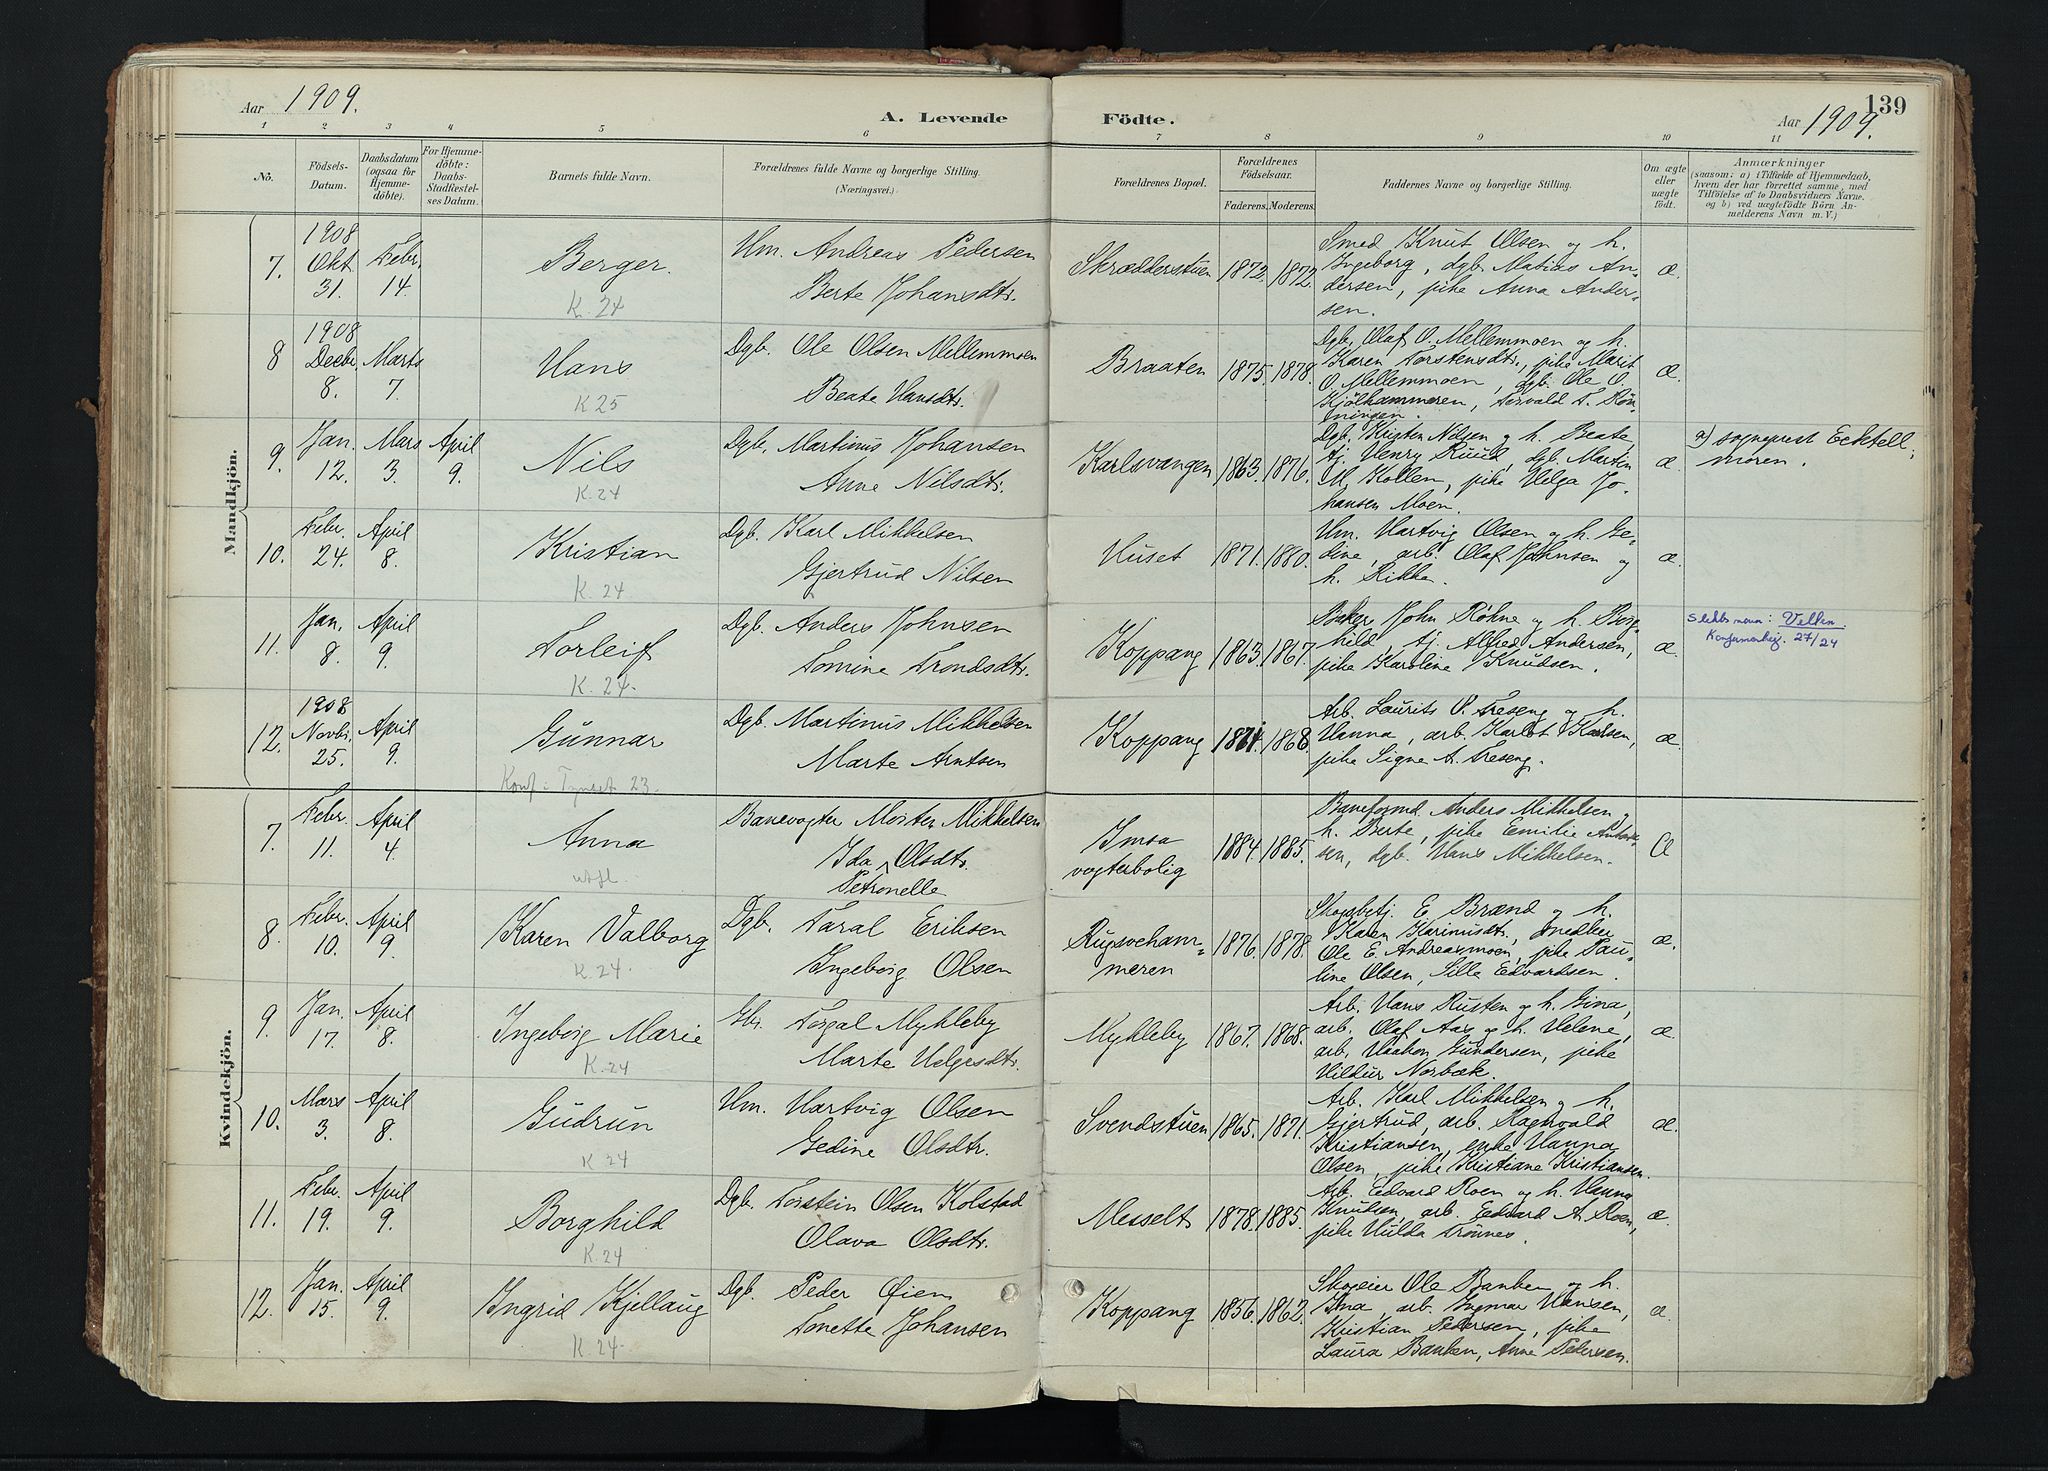 Aar 1909.
A. Levende
Födte.
Aar 1909.
139
1 2 3 4 5 6 7 8 9 10 11
No.
Födsels-Datum.
Daabsdatum (ogsaa for Hjemme-döbte).
For Hjemme-döbte: Daabs-Stadfæstel-ses Datum.
Barnets fulde Navn.
Forældrenes fulde Navne og borgerlige Stilling. (Næringsvei.)
Forældrenes Bopæl.
Forældrenes Födselsaar.
Faderens. Moderens.
Faddernes Navne og borgerlige Stilling.
Om ægte eller uægte födt.
Anmærkninger
(saasom: a) i Tilfælde af Hjemmedaab,
hvem der har forrettet samme, med
Tilföielse af to Daabsvidners Navne,
og b) ved uægtefödte Börn An-
melderens Navn m. V.)
Mandkjön.
7. 1908 Okt. 31. Febr. 14. Berger. K. 24
Um. Andreas Pedersen
Berte Johansdtr.
Skrædderstuen 1872. 1872.
Smed Knut Olsen og h.
Ingeborg, dgb. Matias An-
dersen, pike Anna Ander-
sen.
æ.
8 1908 Decbr. 8. Marts 7. Hans K 25
Dgb. Ole Olsen Mellemmoen
Beate Hansdtr.
Braaten 1875. 1878.
Dgb. Olaf O. Mellemmoen og h.
Karen Torstensdtr., pike Marit
O. Mellemmoen, dgb. Ole O.
Kjölhammeren, Torvald T. Rön-
ningen.
æ.
9. Jan. 12. Mars 3. April 9. Nils K. 24
Dgb. Martinus Johansen
Anne Nilsdtr.
Karlsvangen 1863. 1870.
Dgb. Kristen Nilsen og h. Beate
tj. Henry Ruud, dgb. Martin
M. Kollen, pike Helga Jo-
hansen Moen.
æ.
a) sogneprest
10. Febr. 24. April 8. Kristian K. 24
Dgb. Karl Mikkelsen
Gjertrud Nilsen
Huset 1871. 1880.
Um. Hartvig Olsen og h. Ge-
dine, arb. Olaf Johnsen og
h. Rikke.
æ.
11. Jan. 8. April 9. Torleif K. 24
Dgb. Anders Johnsen
Tomine Trondsdtr.
Koppang 1863. 1867.
Baker John Röhne og h. Borg-
hild, tj. Alfred Andersen,
pike Karoline Knudsen.
æ.
Slektsnavn:
27/24
12. 1908 Novbr. 25. April 9. Gunnar
Konf i Tynset 23.
Dgb. Martinus Mikkelsen
Marte Arntsen
Koppang 1871. 1868.
Arb. Laurits O. Treseng og h.
Hanna, arb. Karlot Karlsen,
pike Signe A. Treseng.
æ.
Kvindekjön.
7. Febr. 11. April 4. Anna utfl.
Banevogter Morten Mikkelsen
Ida Olsdtr.
Petronelle
Imsa
vogterbolig
1884. 1885.
Baneformd. Anders Mikkelsen og
h. Berte, pike Emilie Ander-
sen, dgb. Hans Mikkelsen.
Æ
8. Febr. 10. April 9. Karen Valborg K. 24
Dgb. Taral Eriksen
Ingeborg Olsen
Rugsveham-
meren
1876. 1878.
Skogbetj. E. Brænd og h.
Karen Karinusdtr., snedker
Ole E. Andreasmoen, pike Pau-
line Olsen, Sille Edvardsen.
æ.
9. Jan. 17. April 8. Ingeborg Marie K. 24
Gbr. Torgal Mykleby
Marte Helgesdtr.
Mykleby 1867. 1868.
Arb. Hans Rusten og h. Gina,
arb. Olaf Aas og h. Helene,
arb. Haakon Gundersen, pike
Hildur Norbæk.
æ.
10. Mars 3. April 8. Gudrun K. 24
Um. Hartvig Olsen
Gedine Olsdtr.
Svendstuen 1865. 1871.
Arb. Karl Mikkelsen og h.
Gjertrud, arb. Ragnvald
Kristiansen, enke Hanna
Olsen, pike Kristiane Kristiansen.
æ.
11. Febr. 19. April 9. Borghild K. 24
Dgb. Torstein Olsen Kolstad
Olava Olsdtr.
Messelt 1878. 1885.
Arb. Edvard Roen og h. Hanna
Knudsen, arb. Edvard A. Roen,
pike Hulda Trönnes.
æ.
12. Jan. 15. April 9. Ingrid Kjellaug K. 24
Dgb. Peder Øien
Tonette Johansen
Koppang 1856. 1862.
Skogeier Ole Banken og h.
Ina, arb. Ingmar Hansen,
Kristian Pedersen, pike
Laura Banken, Anne Pedersen.
æ.